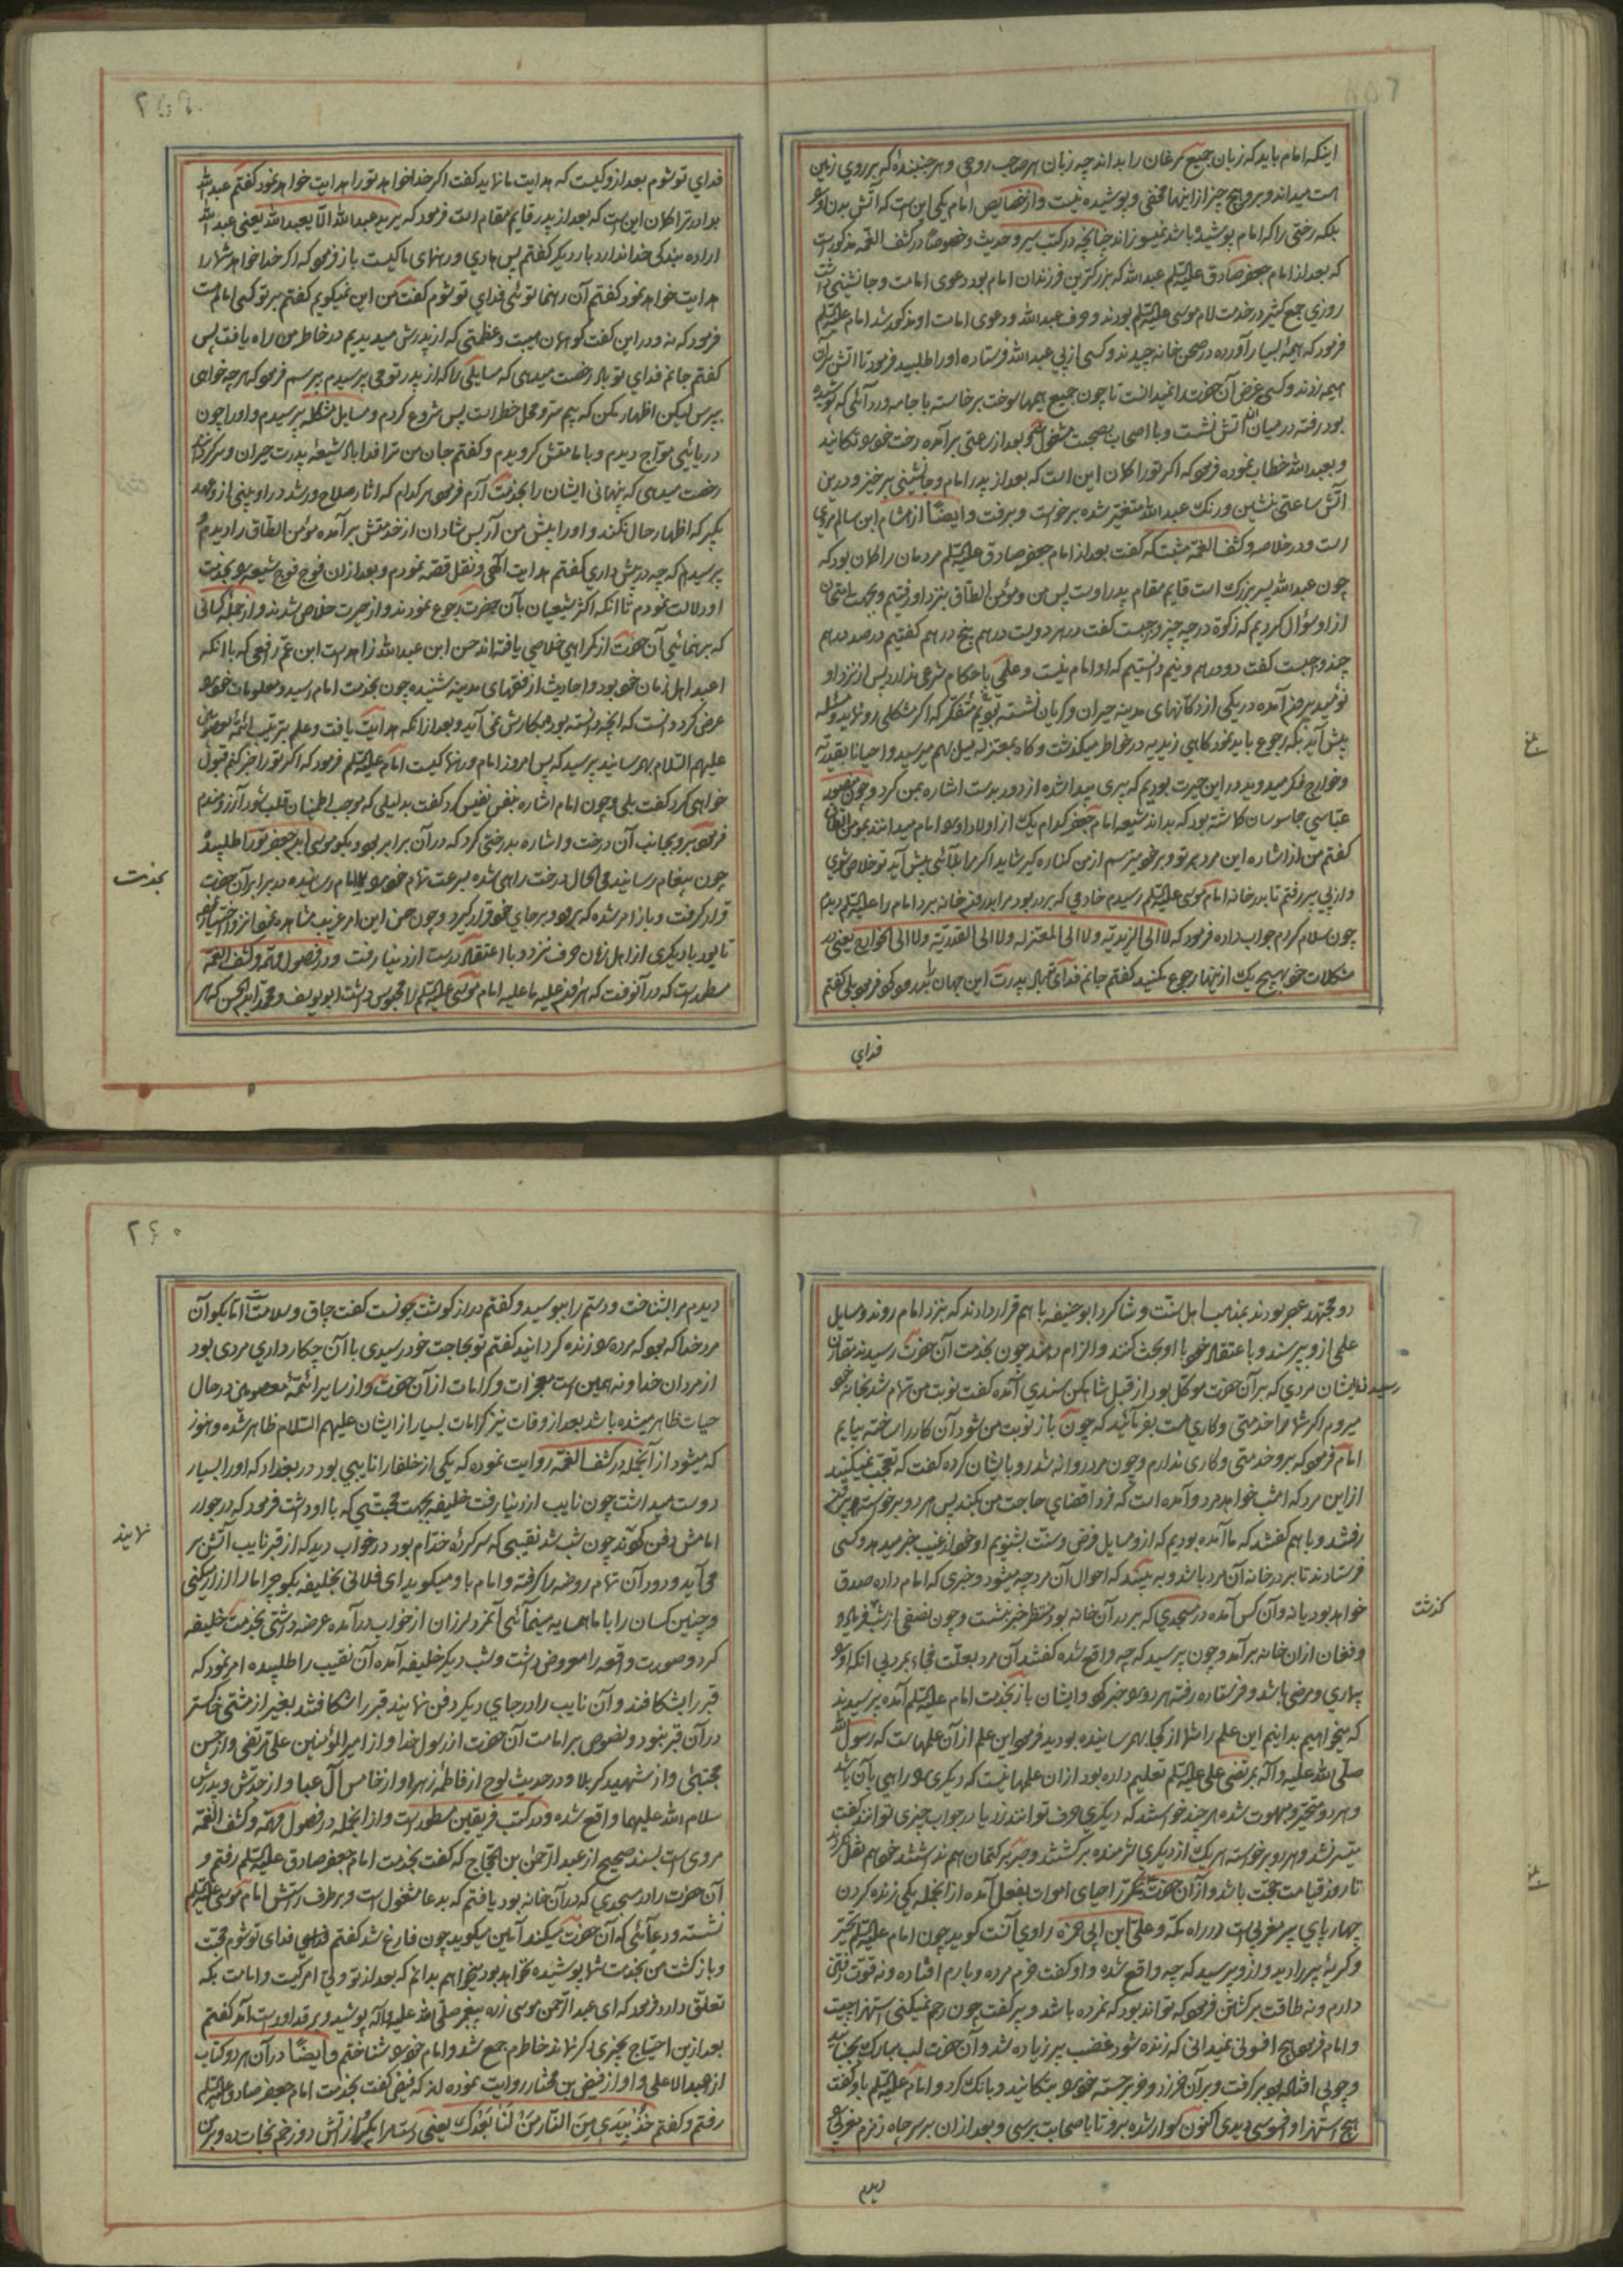 اینکه امام باید که زبان جمیع مرغان را بداند چه زبان هر صاحب روحی و هر جنبنده که بر روی زمین
است میداند و برو هیچ چیز از اینها مخفی و پوشیده نیست و از خصایص امام یکی این است که آتش بدن او
بلکه رختی را که امام پوشیده باشد نمیسوزاند چنانچه در کتب سیر و حدیث و خصوصا در کشف الغمه مذکور است
که بعد از امام جعفر صادق علیه السلم عبد الله که بزرگترین فرزندان امام بود دعوی امامت و جانشینی داشت
روزی جمع کثیر در خدمت امام موسی علیه السلم بودند و حرف عبد الله و دعوی امامت او مذکور شد امام علیه السلم
فرمود که هیمه بسیار آورده در صحن خانه چیدند و کسی از پی عبد الله فرستاده او را طلبید فرمود تا آتش بران
هیمه زدند و کسی غرض آن حضرت را نمیدانست تا چون جمیع هیمها سوخت برخاسته با جامه و ردائی که پوشیده
بود رفته در میان آتش نشست و با اصحاب بصحبت مشغول شد و بعد از ساعتی برآمده رخت خود را تکانید
و بعبد الله خطاب نموده فرمود که اگر تو را گمان این است که بعد از پدر امام و جانشینی برخیز و درین
آتش ساعتی بنشین و رنک عبد الله متغیر شده برخواست و برفت و ایضا از هشام ابن سالم مروی
است و در خلاصه و کشف الغمه مثبت که گفت بعد از امام جعفر صادق علیه السلم مردمان را گمان بود که
چون عبد الله پسر بزرگ است قایم مقام پدر اوست پس من و مؤمن الطاق بنزد او رفتیم و بجهت امتحان
از او سؤال کردیم که زکوة در چه چیز واجبست گفت در هر دویست درهم پنج درهم گفتیم در صد درهم
چند واجبست گفت دو درهم و نیم دانستیم که او امام نیست و علمی باحکام شرعی ندارد پس از نزد او
نومید بیرون آمده در یکی از دکانهای مدینه حیران و گریان نشسته بودیم متفکر که اگر مشکلی رو نماید و مسئله
پیش آید بکه رجوع باید نمود گاهی زیدیه در خاطر میگذشت و گاه بمعتزله میل بهم میرسید و احیانا بقدریه
و خوارج فکر میدوید در این حیرت بودیم که پیری پیدا شده از دور بدست اشاره بمن کرد و چون منصور
عباسی جاسوسان گماشته بود که بداند شیعه امام جعفر کدام یک از اولاد او را امام میدانند بمؤمن الطاق
گفتم من از اشاره این مرد بر تو و بر خود میترسم از من کناره گیر شاید اگر مرا بلائی پیش آید تو خلاص شوی
و از پی پیر رفتم تا بدر خانه امام موسی علیه السلم رسیدم خادمی که بر در بود مرا بدرون خانه برد امام را علیه السلم دیدم
چون سلام کردم جواب داده فرمود که لا الی الزیدیة ولا الی المعتزله ولا الی القدریة ولا الی الخوارج یعنی در
مشکلات خود بهیچ یک از اینها رجوع مکنید گفتم جانم فدای تو باد پدرت این جهان بدرود کرد فرمود بلی گفتم
فدای
فدای تو شوم بعد از و کیست که هدایت ما نماید گفت اگر خدا خواهد تو را هدایت خواهد نمود گفتم عبد الله
برادر ترا گمان این است که بعد از پدر قایم مقام است فرمود که یرید عبد الله الا یعبد الله یعنی عبد الله
اراده بندگی خدا ندارد بار دیگر گفتم پس هادی و رهنمای ما کیست باز فرمود که اگر خدا خواهد شما را
هدایت خواهد نمود گفتم آن رهنما توئی فدای تو شوم گفت من این نمیگویم گفتم بر تو کسی امام است
فرمود که نه و در این گفت گو همان هیبت و عظمتی که از پدرش میدیدیم در خاطر من راه یافت پس
گفتم جانم فدای تو باد رخصت میدهی که مسایلی را که از پدر تو می پرسیدم بپرسم فرمود که هر چه خواهی
بپرس لیکن اظهار مکن که بیم سر و محل خطر است پس شروع کردم و مسایل مشکله پرسیدم و او را چون
دریائی مواج دیدم و بامامتش گرویدم و گفتم جان من ترا فدا باد شیعه پدرت حیران و سرگردانند
رخصت میدهی که پنهانی ایشان را بخدمتت آرم فرمود هر کدام که اثار صلاح و رشد در او بینی از و عهد
بگیر که اظهار حال نکند و او را پیش من آر پس شادان از خدمتش برآمده مؤمن الطاق را دیدم
پرسید که چه در پیش داری گفتم هدایت الهی و نقل قصه نمودم و بعد از ان فوج فوج شیعه را بخدمت
او دلالت نمودم تا آنکه اکثر شیعیان بآن حضرت رجوع نمودند و از حیرت خلاص شدند و از جمله کسانی
که برهنمائی آن حضرت از گمراهی خلاصی یافته اند حسن ابن عبد الله زاهد است ابن عم رافعی که با آنکه
اعبد اهل زمان خود بود و احادیث از فقهای مدینه شنیده چون بخدمت امام رسید و معلومات خود را
عرض کرد دانست که آنچه دانسته بود بهیچ کارش نمی آید و بعد از آنکه هدایت یافت و علم بترتیب ائمه معصومین
علیهم السلام بهم رسانید پرسید که پس امروز امام و رهنما کیست امام علیه السلم فرمود که اگر تو را خبر کنم قبول
خواهی کرد گفت بلی و چون امام اشاره بنفس نفیس کرد گفت بدلیلی که موجب اطمینان قلب شود آرزومندم
فرمود برو بجانب آن درخت و اشاره بدرختی کرد که در آن برابر بود و بگو موسی ابن جعفر تو را طلبیده
چون پیغام رسانید فی الحال درخت راهی شده بسرعت تمام خود را بامام رسانیده در برابر آن حضرت
بخدمت
قرار گرفت و باز امر شده که برود و بر جای خود قرار گیرد و چون حسن این امر غریب مشاهده نمود
تا بود با دیگری از اهل زمان حرف نزد و با اعتقاد درست از دنیا رفت و در فصول مهمه و کشف الغمه
مسطور است که در آنوقت که هارون علیه ما علیه امام موسی علیه السلم را محبوس داشت ابو یوسف و محمد ابن الحسن که هر
دو مجتهد عصر بودند بمذهب اهل سنت و شاگرد ابو حنیفه با هم قرار دادند که بنزد امام روند و مسایل
علمی از و بپرسند و باعتقاد خود با او بحث کنند و الزام دهند چون بخدمت آن حضرت رسیدند مقارن
رسیدن ایشان مردی که بر آن حضرت موکل بود از قبل شاهک سندی آمده گفت نوبت من تمام شد بخانه خود
میروم اگر شما را خدمتی و کاری هست بفرمائید که چون باز نوبت من شود آن کار را ساخته بیایم
امام فرمود که برو خدمتی و کاری ندارم و چون مرد روانه شد رو بایشان کرده گفت که تعجب نمیکنید
از این مرد که امشب خواهد مرد و آمده است که فردا قضای حاجت من بکند پس هر دو برخواسته بیرون
رفتند و با هم گفتند که ما آمده بودیم که از و مسایل فرض و سنت بشنویم او خود از غیب خبر میدهد و کسی
فرستادند تا بر در خانه آن مرد باشد و به بیند که احوال آن مرد چه میشود و خبری که امام داده صدق
خواهد بود یا نه و آن کس آمده در مسجدی که بر در آن خانه بود منتظر خبر بنشست و چون نصفی از شب گذشت فریاد و
گذشت
و فغان از ان خانه برآمد و چون پرسید که چه واقع شده گفتند آن مرد بعلت فجاء بمرد بی آنکه او را
بیماری و مرضی باشد و فرستاده رفته هر دو را خبر کرد و ایشان باز بخدمت امام علیه السلم آمده پرسیدند
که میخواهیم بدانیم این علم را شما از کجا بهم رسانیده بودید فرمود این علم از آن علمهاست که رسول الله
صلی الله علیه و آله بمرتضی علی علیه السلم تعلیم داده بود از ان علمها نیست که دیگری را راهی بآن باشد
و هر دو متحیر و مبهوت شده هر چند خواستند که دیگری حرف توانند زد یا در جواب چیزی توانند گفت
میسر نشد و هر دو برخواسته هر یک از دیگری شرمنده برگشتند و صبر بر کتمان هم نداشتند خود هم نقل کردند
تا روز قیامت حجت باشد و از آن حضرت مکرر احیای اموات بفعل آمده از انجمله یکی زنده کردن
چهارپای پیر مغربی است در راه مکه و علی ابن ابی حمزه راوی آنست گوید چون امام علیه السلم تحیر
و گریه پیر را دید و از و پرسید که چه واقع شده و او گفت خرم مرده و بارم افتاده و نه قوت رفتن
دارم و نه طاقت برگشتن فرمود که تواند بود که نمرده باشد و پیر گفت چون رحم نمیکنی استهزا چیست
و امام فرمود هیچ افسونی نمیدانی که زنده شود غضب پیر زیاده شد و آن حضرت لب مبارک بجنبانید
و چوبی افتاده بود برگرفت و بر آن خر زد و خر برجسته خود را بتکانید و بانک کرد و امام علیه السلم باو گفت
هیچ استهزا و افسوسی دیدی اکنون سوار شده برو تا باصحابت برسی و بعد از ان بر سر چاه زمزم مغربی را
دیدم
دیدم مرا شناخت و دستم را ببوسید و گفتم دراز گوشت چونست گفت چاق و سلامت اما بگو آن
مرد خدا که بود که مرده را زنده گردانید گفتم تو بحاجت خود رسیدی با آن چکار داری مردی بود
از مردان خدا و نه همین است معجزات و کرامات از آن حضرت و از سایر ائمه معصومین در حال
حیات ظاهر میشده باشد بعد از وفات نیز کرامات بسیار از ایشان علیهم السلام ظاهر شده و هنوز
که میشود از آنجمله در کشف الغمه روایت نموده که یکی از خلفا را نایبی بود در بغداد که او را بسیار
دوست میداشت چون نایب از دنیا رفت خلیفه بجهت محبتی که با او داشت فرمود که در جوار
امامش دفن کردند چون شب شد نقیبی که سرکرده خدام بود در خواب دید که از قبر نایب آتش بر
نمایند
می آید و دود آن تمام روضه را گرفته و امام باو میگوید ای فلانی بخلیفه بگو چرا ما را ازار میکنی
و چنین کسان را با ما همسایه مینمائی آنمرد لرزان از خواب درآمده عرضه داشتی بخدمت خلیفه
کرد و صورت واقعه را معروض داشت و شب دیگر خلیفه آمده آن نقیب را طلبیده امر نمود که
قبر را بشکافند و آن نایب را در جای دیگر دفن نمایند قبر را شکافتند بغیر از مشتی خاکستر
در آن قبر نبود و نصوص بر امامت آن حضرت از رسول خدا و از امیر المؤمنین علی مرتضی و از حسن
مجتبی و از شهید کربلا و در حدیث لوح از فاطمه زهرا و از خامس آل عبا و از جدش و پدرش
سلام الله علیهما واقع شده و در کتب فریقین مسطور است و از انجمله در فصول مهمه و کشف الغمه
مروی است بسند صحیح از عبد الرحمن بن الحجاج که گفت بخدمت امام جعفر صادق علیه السلم رفتم و
آن حضرت را در مسجدی که در آن خانه بود یافتم که بدعا مشغول است و بر طرف راستش امام موسی علیه السلم
نشسته و دعائی که آن حضرت میکند آمین میگوید چون فارغ شد گفتم فدای تو شوم محبت
و بازگشت من بخدمت شما پوشیده نخواهد بود میخواهم بدانم که بعد از تو ولی امر کیست و امامت بکه
تعلق دارد فرمود که ای عبد الرحمن موسی زره پیغمبر صلی الله علیه و آله پوشید و بر قد او راست آمد گفتم
بعد ازین احتیاج بچیزی دیگر نماند خاطرم جمع شد و امام خود را شناختم و ایضا در آن هر دو کتاب
از عبد الاعلی و او از فیض بن مختار روایت نموده اند که فیض گفت بخدمت امام جعفر صادق علیه السلم
رفتم و گفتم خذ بیدی من النار من لنا بعدک یعنی دستم را بگیر و از آتش دوزخم نجات ده و بر من